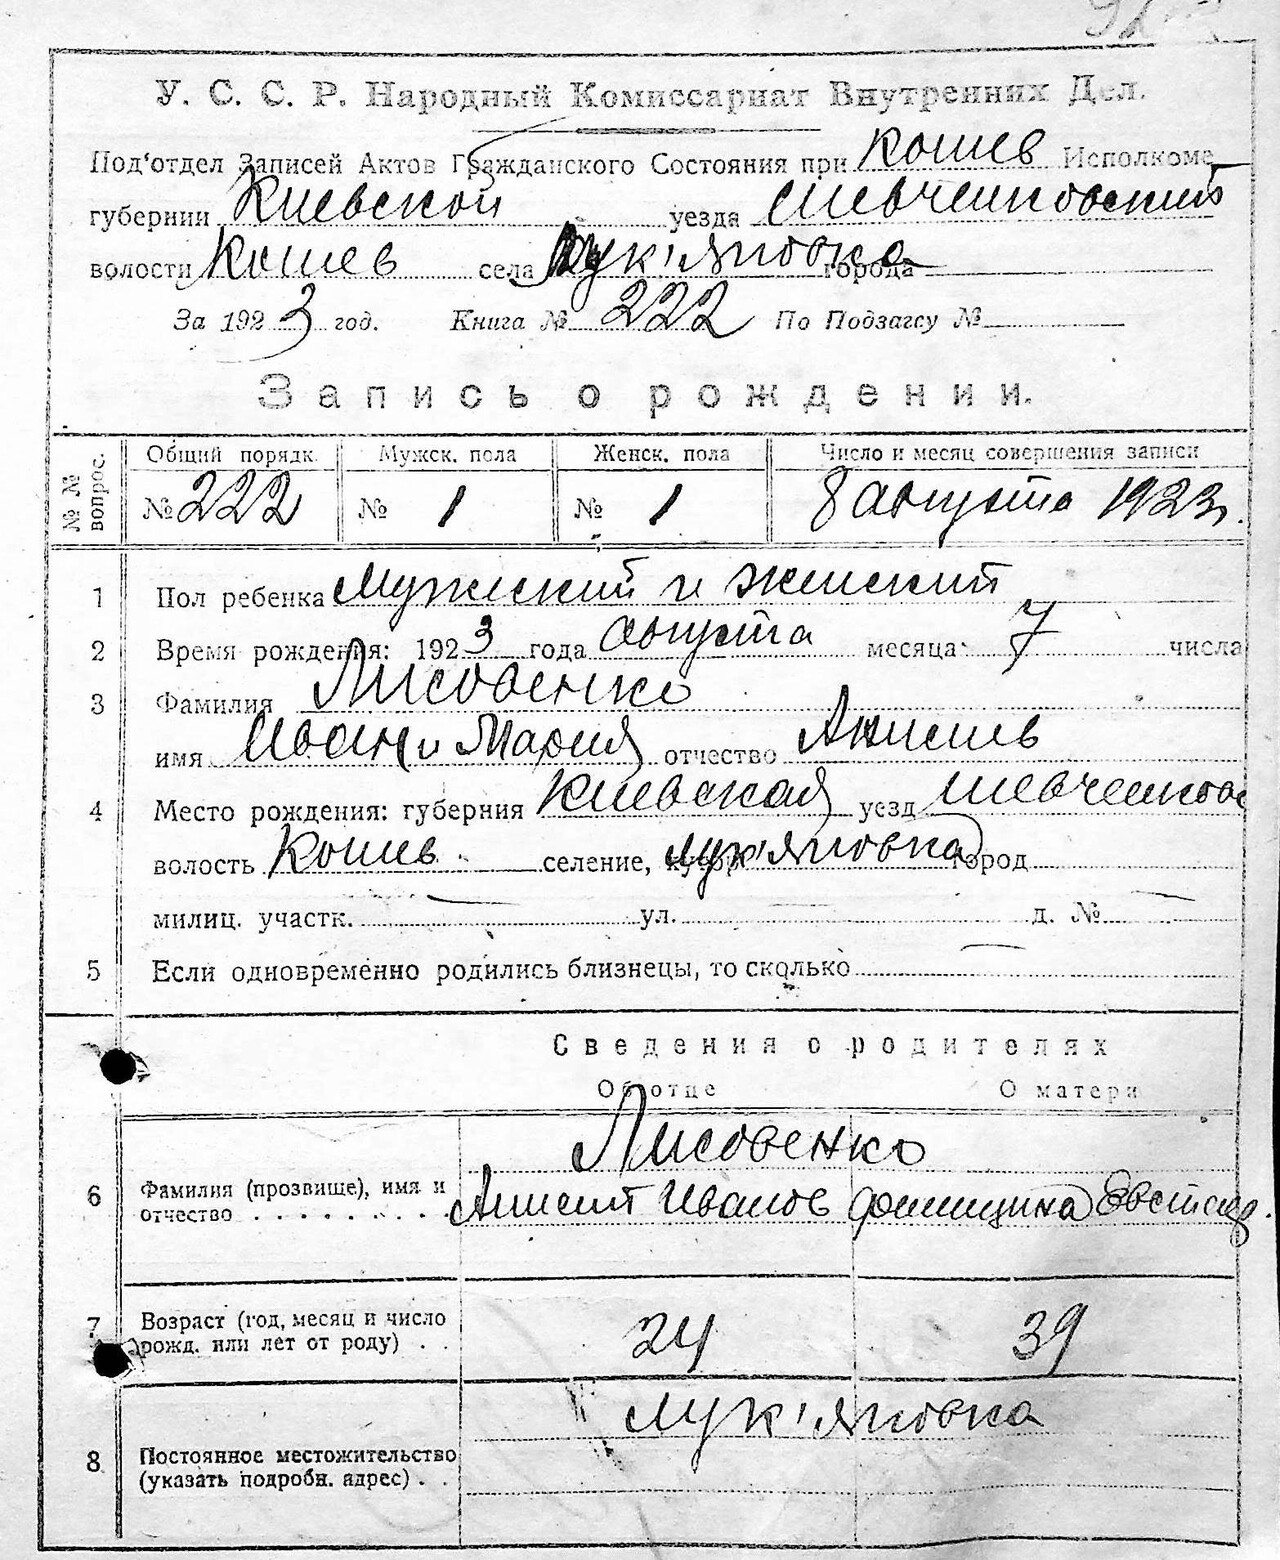 У. С. С. Р. Народный Комиссариат Внутренних Дел.
Под'отдел Записей Актов Гражданского Состояния при Кошев Исполкоме
губернии Киевской уезда Шевченковский
волости Кошев села Лук'яновка города
За 1923 год. Книга № 222 По Подзагсу №
Запись о рождении.
№ № вопрос. Общий порядк. Мужск. пола Женск. пола Число и месяц совершения записи
№ 222 № 1 № 1 8 августа 1923 г.
1 Пол ребенка Мужеский и женский
2 Время рождения: 1923 года августа месяца 7 числа
3 Фамилия Лисовенко
имя Иван и Мария отчество Анисиев
4 Место рождения: губерния Киевская уезд Шевченков
волость Кошев селение, хутор Лук'яновка город
милиц. участк. ул. д. №
5 Если одновременно родились близнецы, то сколько
Сведения о родителях
Об отце О матери
Лисовенко
6 Фамилия (прозвище), имя и
отчество . . . . . . . . Анисит Иванов
7 Возраст (год, месяц и число
рожд. или лет от роду) . . 24 39
Лук'яновка
8 Постоянное местожительство
(указать подробн. адрес) . .